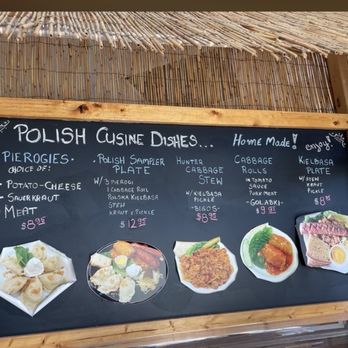 POLISH CUSINE DISHES...
Home Made!
enjoy!
PIEROGIES
CHOICE OF:
- POTATO-CHEESE
- SAUERKRAUT
- MEAT
$8.95
POLISH SAMPLER
PLATE
W/ 3 PIEROGI
1 CABBAGE ROLL
POLSKA KIELBASA
STEW
KRAUT & PICKLE
$12.95
HUNTER
CABBAGE
STEW
W/ KIELBASA
- BIGOS -
$8.95
CABBAGE
ROLLS
IN TOMATO
SAUCE
PORK MEAT
- GOLABKI -
$9.95
KIELBASA
PLATE
KRAUT
PICKLE